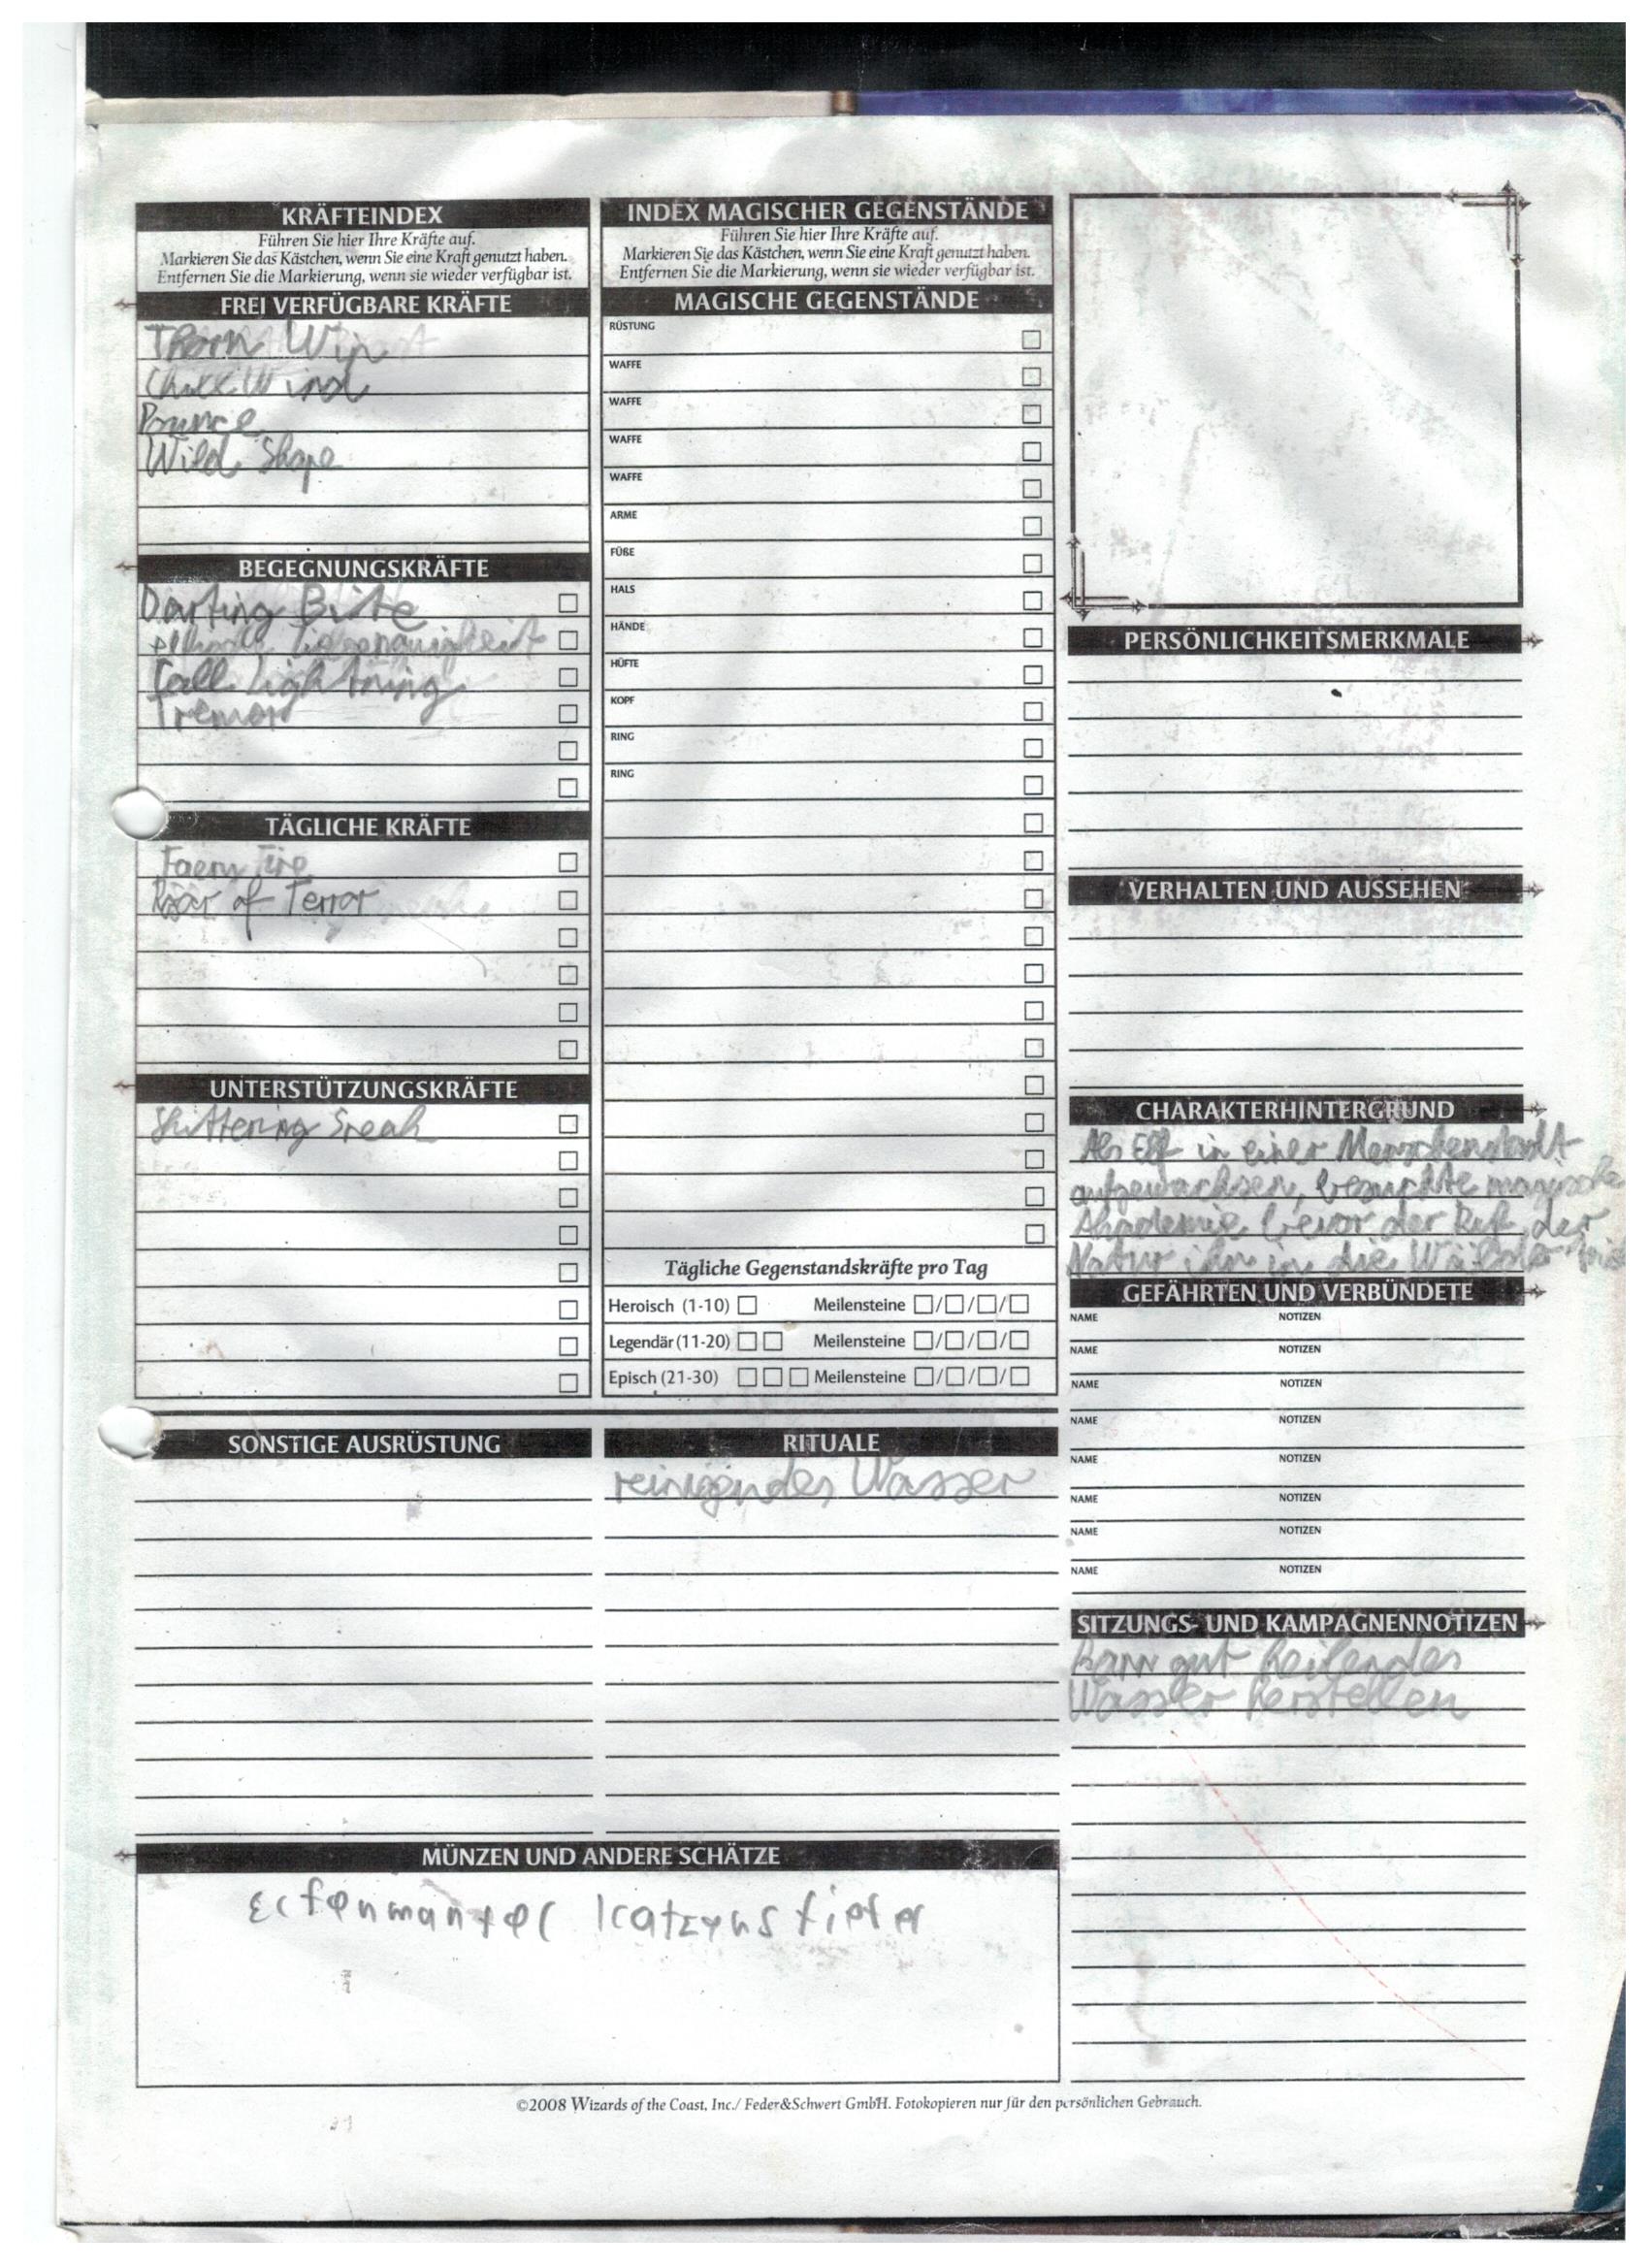 KRÄFTEINDEX
Führen Sie hier Ihre Kräfte auf.
Markieren Sie das Kästchen, wenn Sie eine Kraft genutzt haben.
Entfernen Sie die Markierung, wenn sie wieder verfügbar ist.
FREI VERFÜGBARE KRÄFTE
Thorn Win
Chill Wind
Pounce
Wild Shape
BEGEGNUNGSKRÄFTE
Darting Bite
Call Lightning
Tremor
TÄGLICHE KRÄFTE
Faery Fire
Roar of Terror
UNTERSTÜTZUNGSKRÄFTE
Skittering Sneak
INDEX MAGISCHER GEGENSTÄNDE
Führen Sie hier Ihre Kräfte auf.
Markieren Sie das Kästchen, wenn Sie eine Kraft genutzt haben.
Entfernen Sie die Markierung, wenn sie wieder verfügbar ist.
MAGISCHE GEGENSTÄNDE
RÜSTUNG
WAFFE
WAFFE
WAFFE
WAFFE
ARME
FÜßE
HALS
HÄNDE
HÜFTE
KOPF
RING
RING
Tägliche Gegenstandskräfte pro Tag
Heroisch (1-10) Meilensteine / / /
Legendär (11-20) Meilensteine / / /
Episch (21-30) Meilensteine / / /
SONSTIGE AUSRÜSTUNG
RITUALE
reinigendes Wasser
MÜNZEN UND ANDERE SCHÄTZE
Elfenmantel Katzenstiefel
PERSÖNLICHKEITSMERKMALE
VERHALTEN UND AUSSEHEN
CHARAKTERHINTERGRUND
Als Elf in einer Menschenstadt
aufgewachsen, besuchte magische
Akademie bevor der Ruf der
Natur ihn in die Wälder
GEFÄHRTEN UND VERBÜNDETE
NAME NOTIZEN
NAME NOTIZEN
NAME NOTIZEN
NAME NOTIZEN
NAME NOTIZEN
NAME NOTIZEN
NAME NOTIZEN
NAME NOTIZEN
SITZUNGS- UND KAMPAGNENNOTIZEN
kann gut heilendes
Wasser herstellen
©2008 Wizards of the Coast, Inc./ Feder&Schwert GmbH. Fotokopieren nur für den persönlichen Gebrauch.